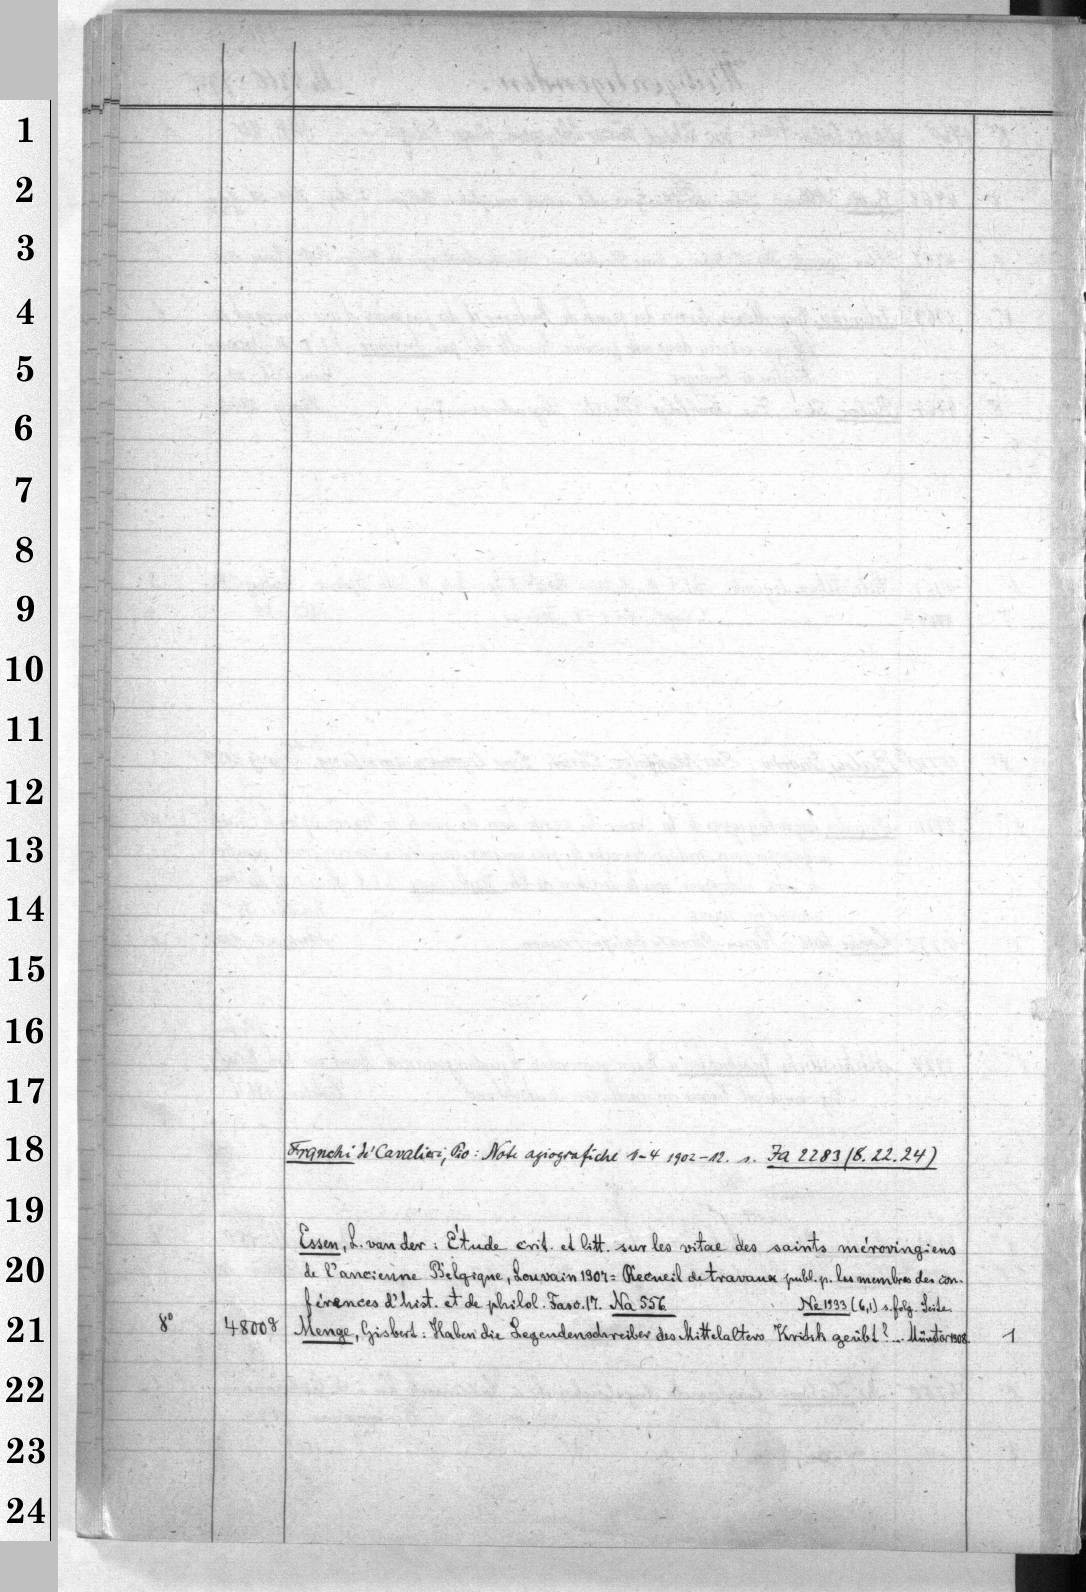 1
2
3
4
5
6
7
8
9
10
11
12
13
14
15
16
17
18
Franchi de' Cavalieri, Pio: Note agiografiche 1-4 1902-12. s. Fa 2283 (8.22.24)
19
Essen, L. van der: Étude crit. et litt. sur les vitae des saints mérovingiens
20
de l'ancienne Belgique, Louvain 1907 = Recueil de travaux publ. p. les membres des con-
férences d'hist. et de philol. Fasc. 17. Na 556 Ne 1933 (6,1) s. folg. Seite.
21
8° 48008 Menge, Gisbert: Haben die Legendenschreiber des Mittelalters Kritik geübt? .. Münster 1908. 1
22
23
24